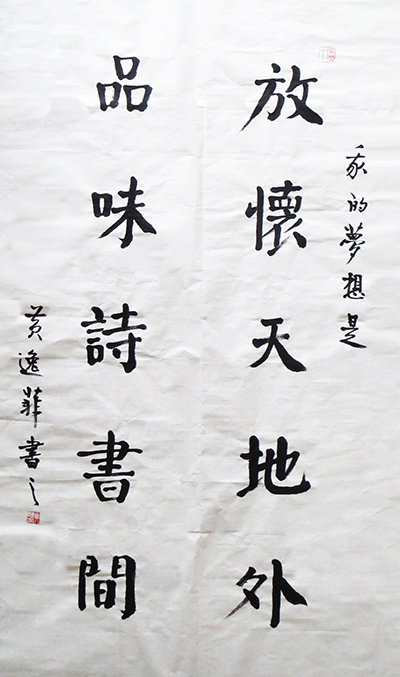 我的夢想是
放懷天地外
品味詩書間
黃逸菲書之